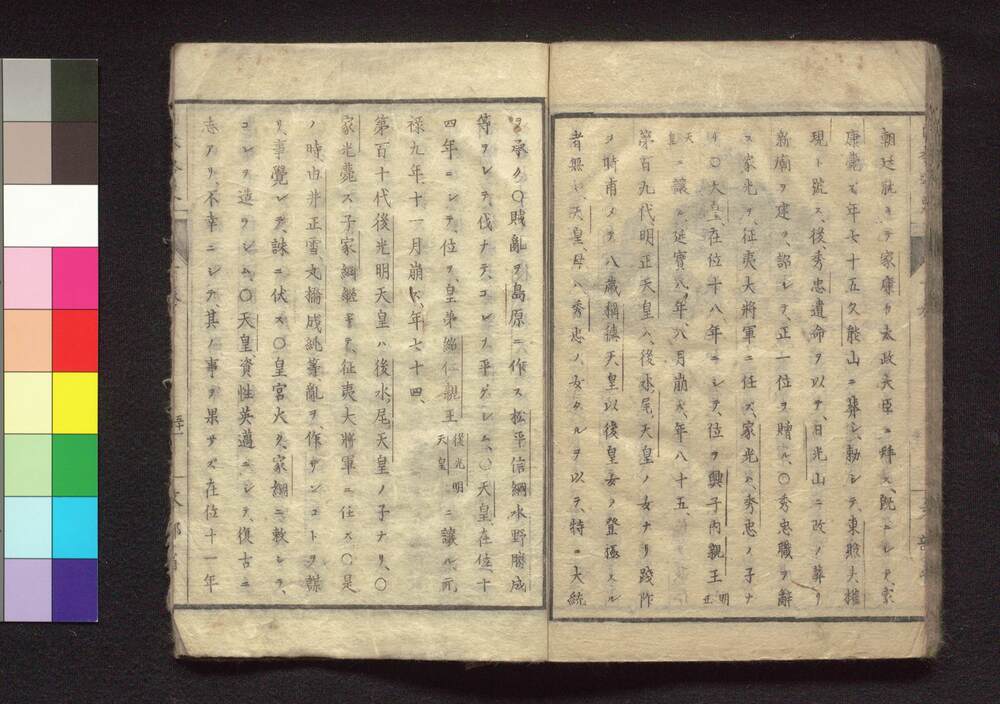 朝廷就キテ家康ヲ太政大臣ニ拜ス、既ニシテ家
康薨ず年七十五久能山ニ葬ル、勅シテ東照大權
現ト號ス、後、秀忠遺命ヲ以テ、日光山ニ改メ葬リ
新廟ヲ建ツ、詔シテ、正一位ヲ贈ル、〇秀忠職ヲ辭
ス家光ヲ、征夷大將軍ニ任ズ、家光ハ、秀忠ノ子ナ
リ〇天皇在位十八年ニシテ、位ヲ興子內親王明正
天皇ニ讓ル延寶八年八月崩ズ、年八十五、
第百九代明正天皇ハ、後水尾天皇ノ女ナリ踐阼
ノ時甫メテ八歲稱德天皇以後皇女ノ登極スル
者無シ、天皇、母ハ秀忠ノ女タルヲ以テ、特ニ大統
ヲ承ク〇賊亂ヲ島原ニ作ス松平信綱水野勝成
等ヲシテ、伐チテ、コレヲ平ゲシム、〇天皇、在位、十
四年ニシテ、位ヲ皇弟紹仁親王後光明天皇ニ讓ル元
祿九年、十一月崩ズ、年七十四、
第百十代後光明天皇ハ後水尾天皇ノ子ナリ、〇
家光薨ス子家綱繼ギテ、征夷大將軍ニ任ズ〇是
ノ時、由井正雪、丸橋成純等亂ヲ、作サンコトヲ謀
リ、事覺レテ、誅ニ伏ス〇皇宮火ク、家綱ニ敕シテ、
コレヲ造ラシム、〇天皇、資性英邁ニシテ、復古ニ
志アリ、不幸ニシテ、其ノ事ヲ果サズ在位十一年